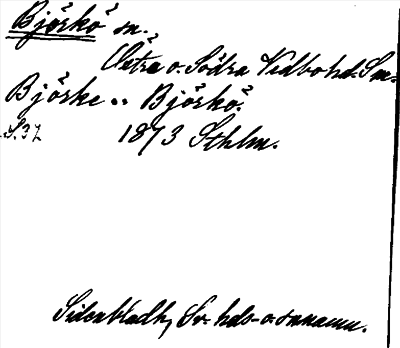 Björkö sn.
Östra o. Södra Vedbo hd. Sm.
Björke .. Björkö.
S. 37 1873 Sthlm.
Sidenbladh, Sv. hds- o. snnamn.